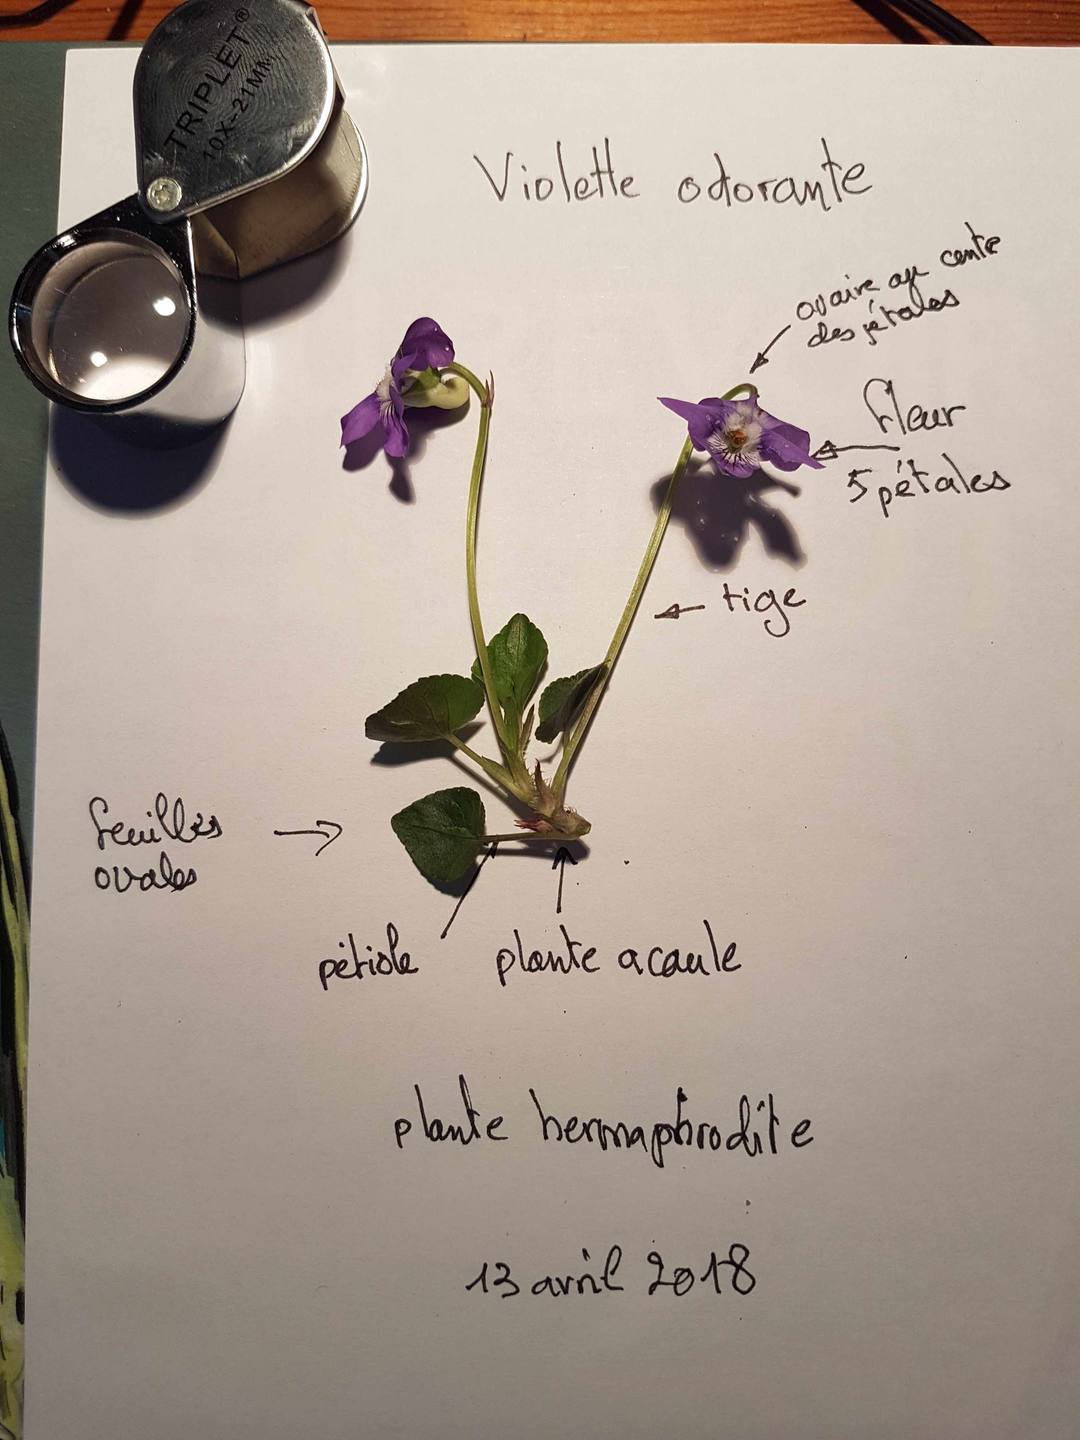 TRIPLET®
10X-21MM
Violette odorante
ovaire au centre
des pétales
fleur
5 pétales
tige
feuilles
ovales
pétiole
plante acaule
plante hermaphrodite
13 avril 2018